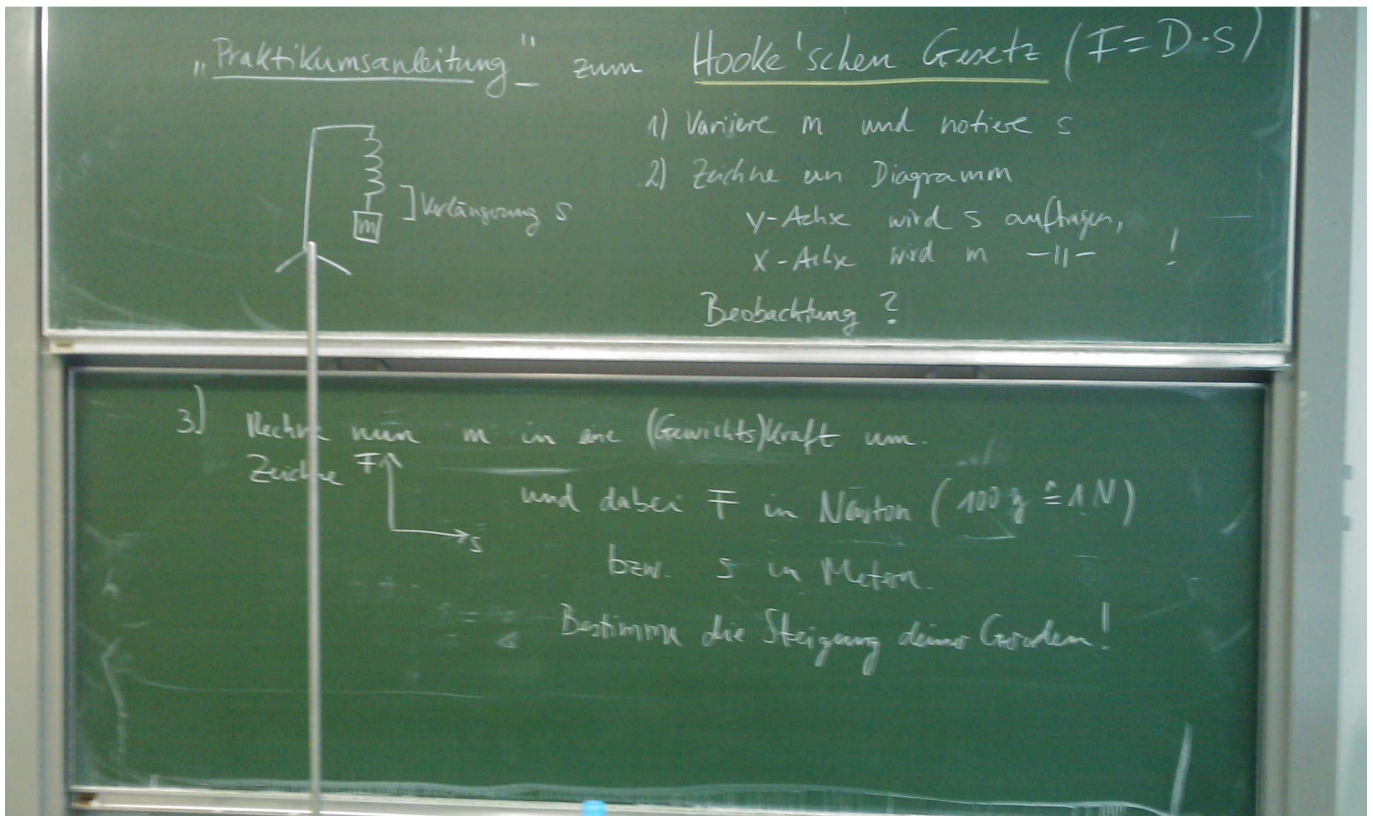 „Praktikumsanleitung" zum Hooke'schen Gesetz (F=D·s)
1) Variiere m und notiere s
2) Zeichne ein Diagramm
y-Achse wird s auftragen,
x-Achse wird m -||- !
Beobachtung ?
m
] Verlängerung s
3) Rechne nun m in eine (Gewichts)kraft um.
Zeichne F
s
und dabei F in Newton (100 g ≙ 1 N)
bzw. s in Metern.
Bestimme die Steigung deiner Geraden!